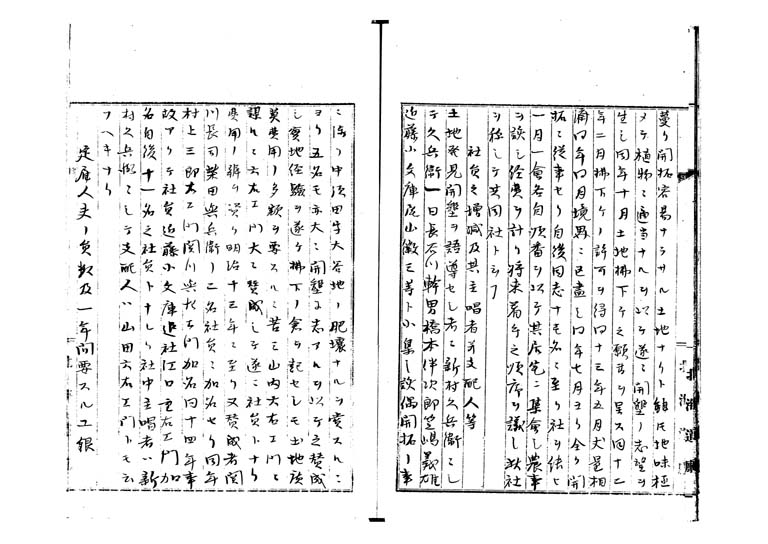 蔓リ開拓容易ナラサル土地ナリト雖モ地味極
メテ植物ニ適当ナルヲ以テ遂ニ開墾ノ志望ヲ
生シ同年十月土地拂下ケ之願書ヲ呈ス同十二
年二月拂下ケノ許可ヲ得同十三年五月丈量相
済同年四月境界ニ已盡シ同年七月ヨリ全ク開
拓ニ従事セリ自後同志十壱名ニ至リ社ヲ結ヒ
一月一會各自順番ヲ以テ其居宅ニ集會シ農事
ヲ談シ経費ヲ計リ将来着手之順序ヲ議シ此社
ヲ称シテ共同社ト云フ
社員之増減及其主唱者並支配人等
土地発見開墾ヲ誘導セシ者ハ新村久兵衛ニシ
テ久兵衛一日長谷川幹男橋本伴次郎笠嶋義雄
近藤小文庫片山徹三等ト小集シ談偶開拓ノ事
ニ渉ル中後田字大谷地ノ肥壌ナルヲ愛スルニ
ヨリ五名モ亦大ニ開墾ニ志アルヲ以テ之賛成
シ実地経験ヲ遂ケ拂下ノ念ヲ起セシモ土地広
莫費用ノ多額ヲ要スルニ苦ミ山内六右エ門ニ
謀ルニ六右エ門大ニ賛成シテ遂ニ社員トナリ
費用ノ辨ヲ資ケ明治十三年ニ至リ又賛成者関
川長司柴田與兵衛ノ二名社員ニ加名セリ同年
村上三郎右エ門関川與惣右エ門加名同十四年事
故アリテ社員近藤小文庫退社江口重右エ門加
名自後十一名之社員トナレリ社中主唱者ハ新
村久兵衛ニシテ支配人ハ山田六右エ門トモ云
フヘキナリ
定雇人夫ノ員数及一年間要スル工銀